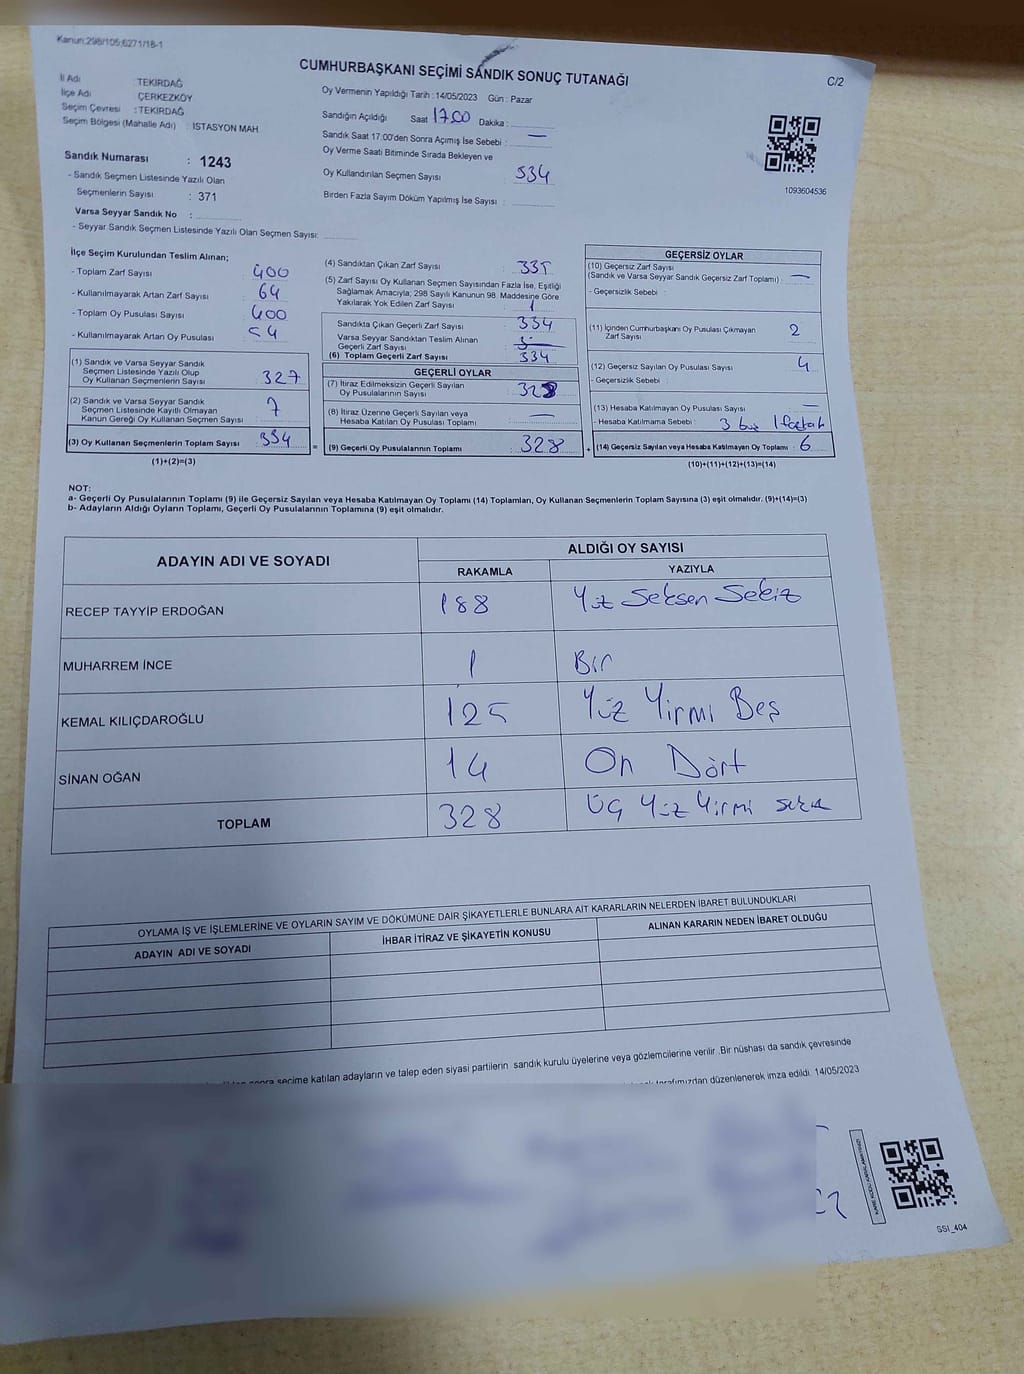 Kanun:298/105;6271/18-1
CUMHURBAŞKANI SEÇİMİ SANDIK SONUÇ TUTANAĞI
C/2
İl Adı : TEKİRDAĞ
İlçe Adı : ÇERKEZKÖY
Seçim Çevresi : TEKİRDAĞ
Seçim Bölgesi (Mahalle Adı) : İSTASYON MAH.
Sandık Numarası : 1243
- Sandık Seçmen Listesinde Yazılı Olan
Seçmenlerin Sayısı : 371
Varsa Seyyar Sandık No :
- Seyyar Sandık Seçmen Listesinde Yazılı Olan Seçmen Sayısı:
Oy Vermenin Yapıldığı Tarih : 14/05/2023 Gün : Pazar
Sandığın Açıldığı Saat 17.00 Dakika :
Sandık Saat 17.00'den Sonra Açımış İse Sebebi : —
Oy Verme Saati Bitiminde Sırada Bekleyen ve
Oy Kullandırılan Seçmen Sayısı 334
Birden Fazla Sayım Döküm Yapılmış İse Sayısı :
1093604536
İlçe Seçim Kurulundan Teslim Alınan;
- Toplam Zarf Sayısı : 400
- Kullanılmayarak Artan Zarf Sayısı : 64
- Toplam Oy Pusulası Sayısı : 400
- Kullanılmayarak Artan Oy Pusulası : 54
(1) Sandık ve Varsa Seyyar Sandık
Seçmen Listesinde Yazılı Olup
Oy Kullanan Seçmenlerin Sayısı : 327
(2) Sandık ve Varsa Seyyar Sandık
Seçmen Listesinde Kayıtlı Olmayan
Kanun Gereği Oy Kullanan Seçmen Sayısı : 7
(3) Oy Kullanan Seçmenlerin Toplam Sayısı : 334
(1)+(2)=(3)
(4) Sandıktan Çıkan Zarf Sayısı : 335
(5) Zarf Sayısı Oy Kullanan Seçmen Sayısından Fazla İse, Eşitliği
Sağlamak Amacıyla, 298 Sayılı Kanunun 98. Maddesine Göre
Yakılarak Yok Edilen Zarf Sayısı : 1
Sandıkta Çıkan Geçerli Zarf Sayısı : 334
Varsa Seyyar Sandıktan Teslim Alınan
Geçerli Zarf Sayısı :
(6) Toplam Geçerli Zarf Sayısı : 334
GEÇERLİ OYLAR
(7) İtiraz Edilmeksizin Geçerli Sayılan
Oy Pusulalarının Sayısı : 328
(8) İtiraz Üzerine Geçerli Sayılan veya
Hesaba Katılan Oy Pusulası Toplamı : —
= (9) Geçerli Oy Pusulalarının Toplamı : 328
GEÇERSİZ OYLAR
(10) Geçersiz Zarf Sayısı
(Sandık ve Varsa Seyyar Sandık Geçersiz Zarf Toplamı) : —
- Geçersizlik Sebebi :
(11) İçinden Cumhurbaşkanı Oy Pusulası Çıkmayan
Zarf Sayısı : 2
(12) Geçersiz Sayılan Oy Pusulası Sayısı : 4
- Geçersizlik Sebebi :
(13) Hesaba Katılmayan Oy Pusulası Sayısı : —
- Hesaba Katılmama Sebebi : 3 1
+ (14) Geçersiz Sayılan veya Hesaba Katılmayan Oy Toplamı : 6
(10)+(11)+(12)+(13)=(14)
NOT:
a- Geçerli Oy Pusulalarının Toplamı (9) ile Geçersiz Sayılan veya Hesaba Katılmayan Oy Toplamı (14) Toplamları, Oy Kullanan Seçmenlerin Toplam Sayısına (3) eşit olmalıdır. (9)+(14)=(3)
b- Adayların Aldığı Oyların Toplamı, Geçerli Oy Pusulalarının Toplamına (9) eşit olmalıdır.
ADAYIN ADI VE SOYADI
ALDIĞI OY SAYISI
RAKAMLA YAZIYLA
RECEP TAYYİP ERDOĞAN 188 Yüz Seksen Sekiz
MUHARREM İNCE 1 Bir
KEMAL KILIÇDAROĞLU 125 Yüz Yirmi Beş
SİNAN OĞAN 14 On Dört
TOPLAM 328 Üç Yüz Yirmi sekiz
OYLAMA İŞ VE İŞLEMLERİNE VE OYLARIN SAYIM VE DÖKÜMÜNE DAİR ŞİKAYETLERLE BUNLARA AİT KARARLARIN NELERDEN İBARET BULUNDUKLARI
ADAYIN ADI VE SOYADI İHBAR İTİRAZ VE ŞİKAYETİN KONUSU ALINAN KARARIN NEDEN İBARET OLDUĞU
sonra seçime katılan adayların ve talep eden siyasi partilerin sandık kurulu üyelerine veya gözlemcilerine verilir .Bir nüshası da sandık çevresinde
tarafımızdan düzenlenerek imza edildi. 14/05/2023
SSI_404